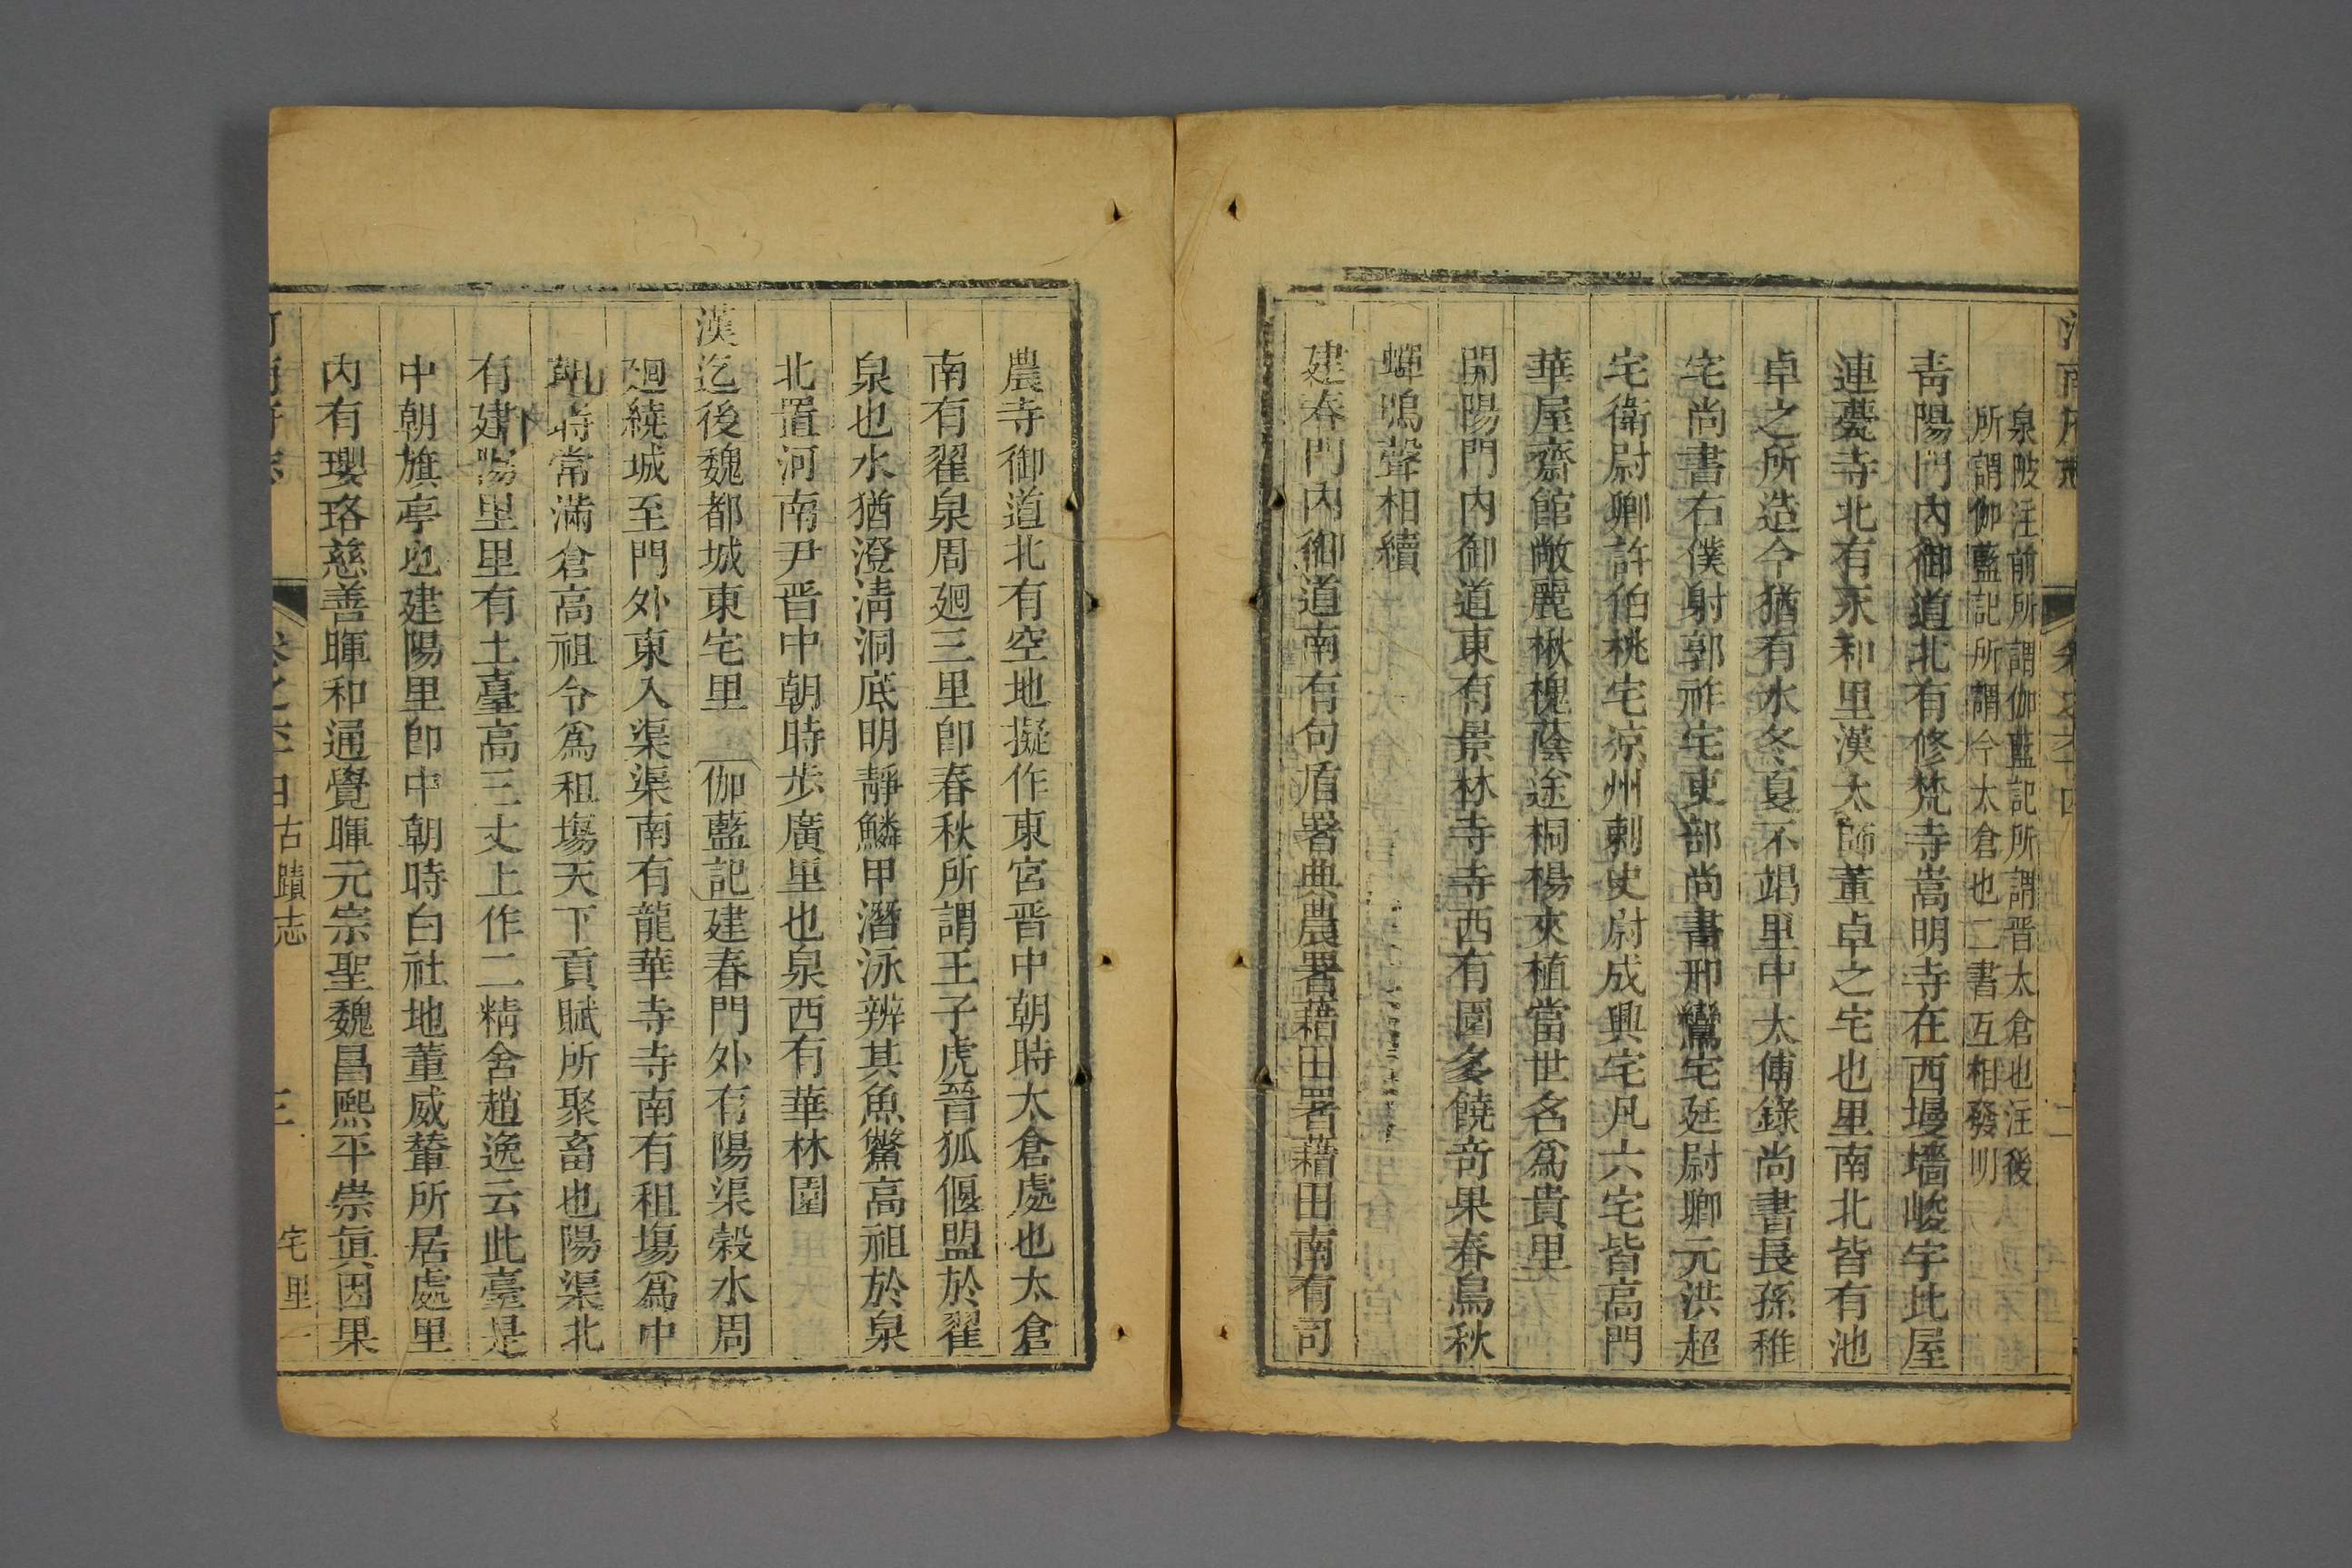 泉陂注前所謂伽藍記所謂晋太倉也注後
所謂伽藍記所謂今太倉也二書互相發明
青陽門內御道北有修梵寺嵩明寺在西墁墻峻宇此屋
連甍寺北有永和里漢太師董卓之宅也里南北皆有池
卓之所造今猶有水冬夏不竭里中太傅錄尚書長孫稚
宅尚書右僕射郭祚宅吏部尚書邢鸞宅廷尉卿元洪超
宅衛尉卿許伯桃宅凉州刺史尉成興宅凡六宅皆高門
華屋齋館敞麗楸槐蔭途桐楊夾植當世名爲貴里
開陽門內御道東有景林寺寺西有園多饒奇果春鳥秋
蟬鳴聲相續
建春門內御道南有句盾署典農署藉田署藉田南有司
農寺御道北有空地擬作東宮晋中朝時太倉處也太倉
南有翟泉周廻三里卽春秋所謂王子虎晉狐偃盟於翟
泉也水猶澄淸洞底明靜鱗甲潛泳辨其魚鱉高祖於泉
北置河南尹晋中朝時步廣里也泉西有華林園
漢迄後魏都城東宅里 伽藍記建春門外有陽渠穀水周
廻繞城至門外東入渠渠南有龍華寺寺南有租塲爲中
朝時常滿倉高祖令爲租塲天下貢賦所聚畜也陽渠北
有建陽里里有土臺高三丈上作二精舍趙逸云此臺是
中朝旗亭也建陽里卽中朝時白社地董威輦所居處里
內有瓔珞慈善暉和通覺暉元宗聖魏昌熙平崇眞因果
古蹟志 三 宅里一